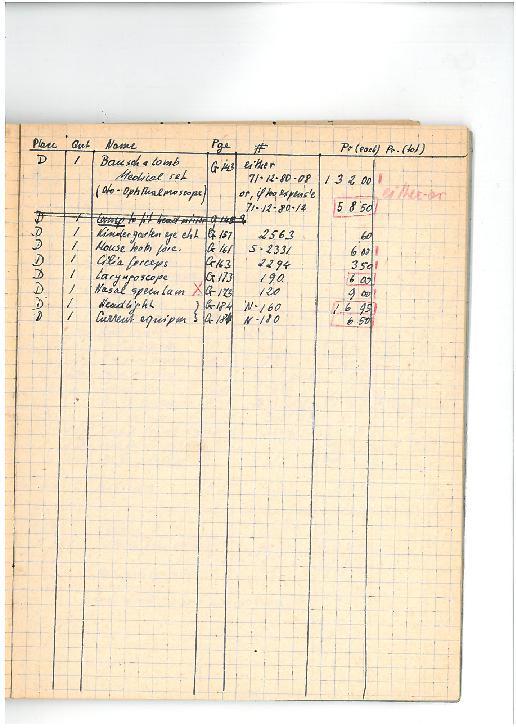 Place Qnt Name Pge # Pr (each) Pr. (tot)
D 1 Bausch & Lomb G 143 either
Medical set 71-12-80-08 132 00
(Oto-Ophthalmoscope) or, if too expensive either-or
71-12-80-12 58 50
D 1 Lamp to fit head mirror G 148
D 1 Kindergarten eye cht G 157 2563 60
D 1 Mouse tooth forc. G 161 S-2331 6 00
D 1 Cilia forceps G 163 2294 3 50
D 1 Laryngoscope G 173 190 6 00
D 1 Nasal speculum X G 175 120 9 00
D 1 Headlight } G 184 N-160 16 95
D 1 Current equipm } G 184 N-180 6 50